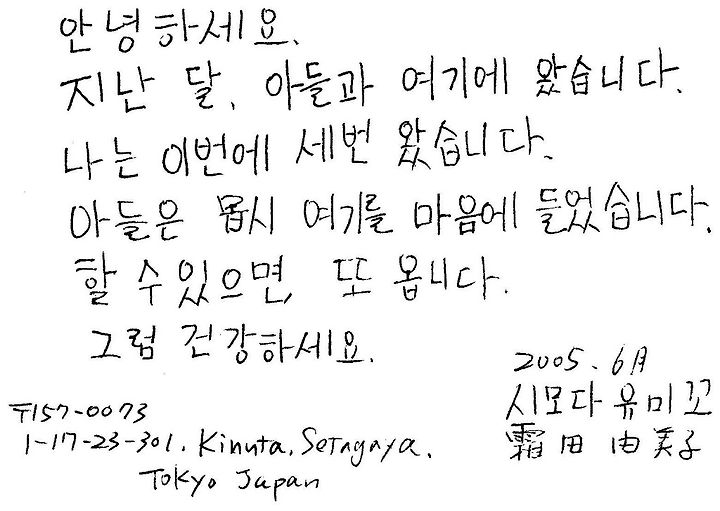 안녕하세요.
지난 달, 아들과 여기에 왔습니다.
나는 이번에 세번 왔습니다.
아들은 몹시 여기를 마음에 들었습니다.
할 수 있으면, 또 옵니다.
그럼 건강하세요.
2005. 6月
시모다 유미꼬
霜田 由美子
〒157-0073
1-17-23-301. Kinuta. Setagaya.
Tokyo Japan